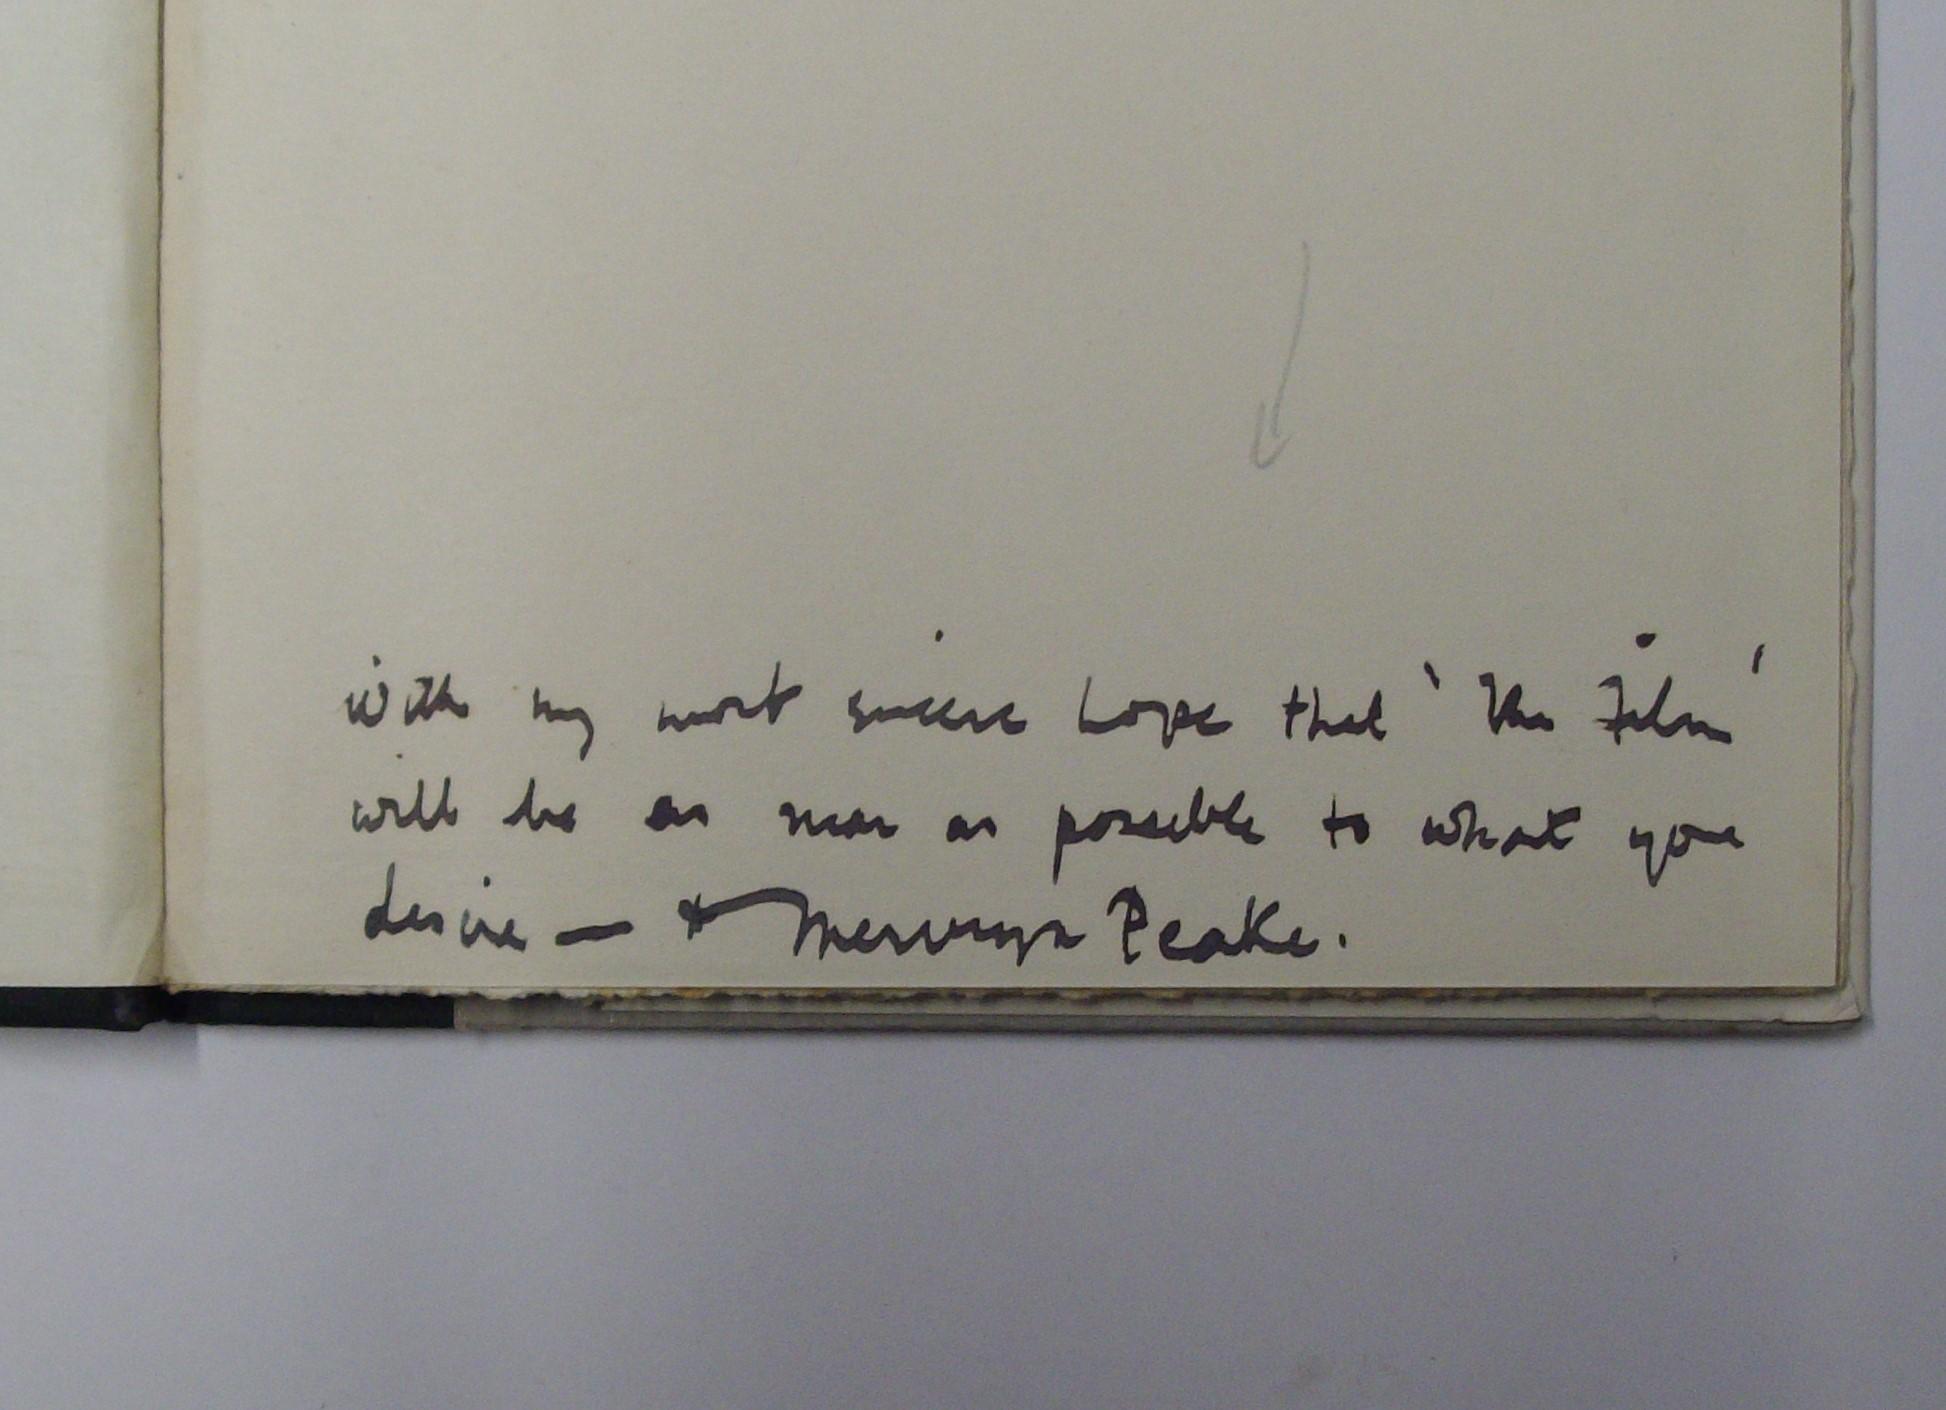 With my most sincere hope that 'The Film'
will be as near as possible to what you
desire — & Mervyn Peake.